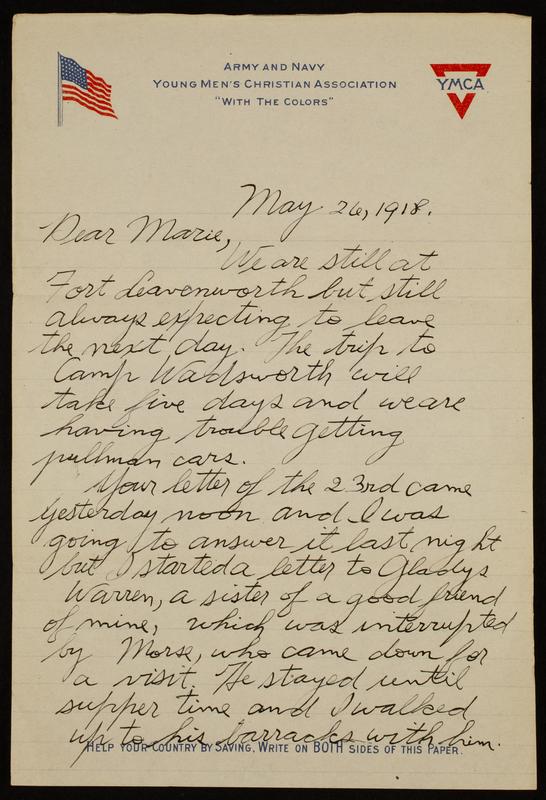 ARMY AND NAVY
YOUNG MEN'S CHRISTIAN ASSOCIATION
"WITH THE COLORS"
YMCA
May 26, 1918.
Dear Marie,
We are still at
Fort Leavenworth but still
always expecting to leave
the next day. The trip to
Camp Wadsworth will
take five days and we are
having trouble getting
pullman cars.
Your letter of the 23rd came
yesterday noon and I was
going to answer it last night
but I started a letter to Gladys
Warren, a sister of a good friend
of mine, which was interrupted
by Morse, who came down for
a visit. He stayed until
supper time and I walked
up to his barracks with him.
HELP YOUR COUNTRY BY SAVING, WRITE ON BOTH SIDES OF THIS PAPER.